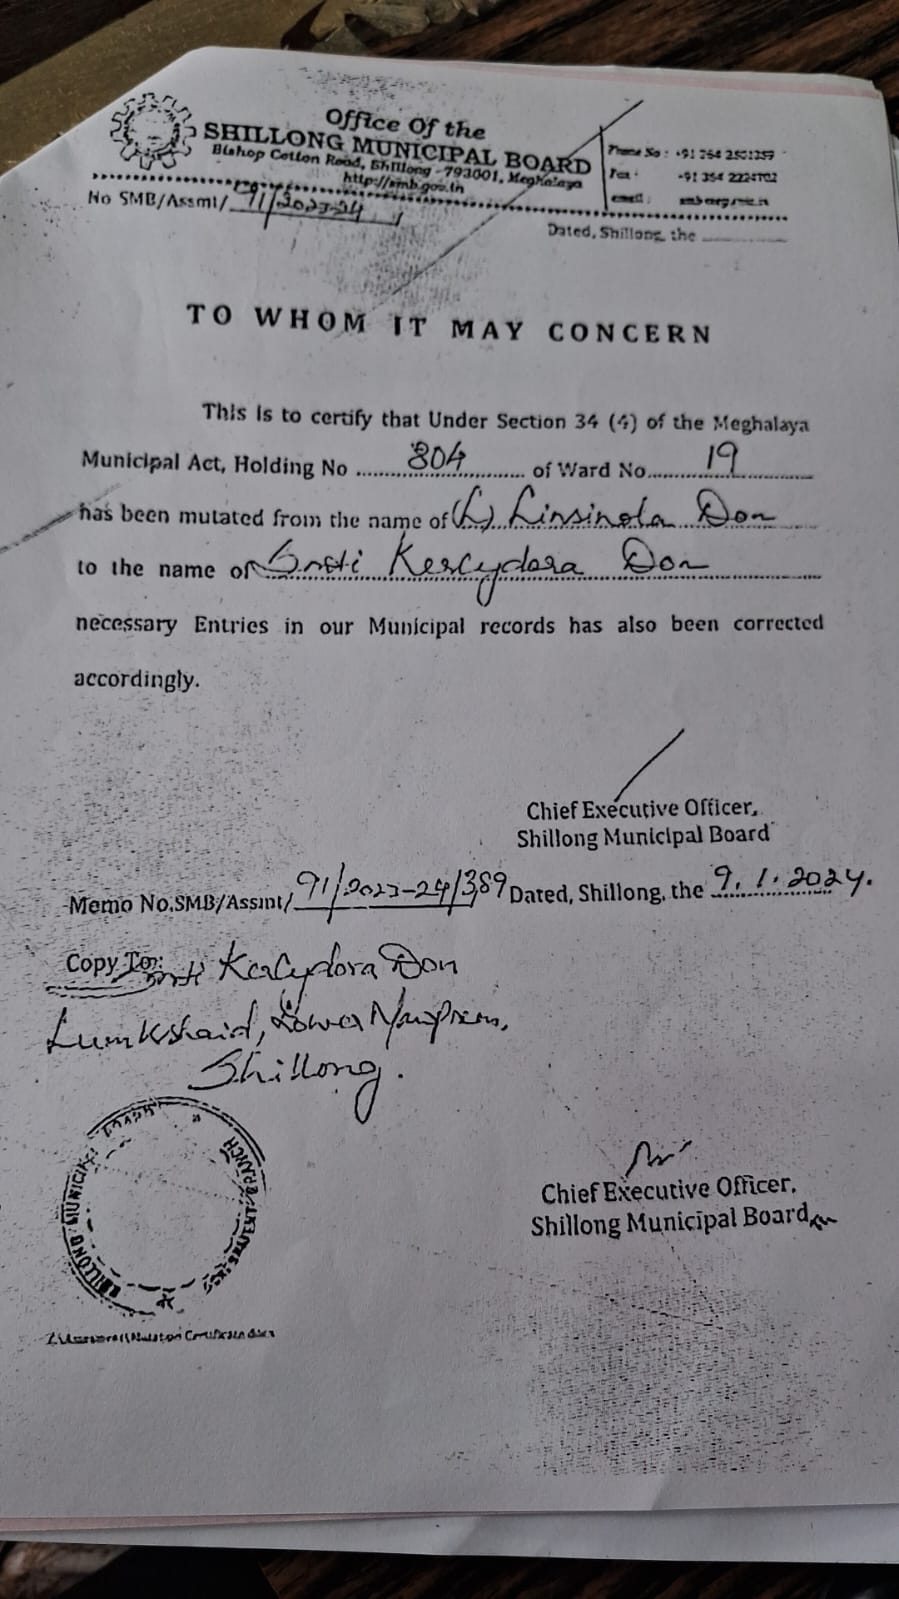 Office Of the
SHILLONG MUNICIPAL BOARD
Bishop Cotton Road, Shillong -793001, Meghalaya
http://smb.gov.in
Fax :
email :
No SMB/Assmt/ 91/2023-24
Dated, Shillong, the
TO WHOM IT MAY CONCERN
This is to certify that Under Section 34 (4) of the Meghalaya
Municipal Act, Holding No 804 of Ward No 19
has been mutated from the name of (L) Linsinola Don
to the name of Smti Kercydora Don
necessary Entries in our Municipal records has also been corrected
accordingly.
Chief Executive Officer,
Shillong Municipal Board
Memo No.SMB/Assmt/ 91/2023-24/389 Dated, Shillong, the 9.1.2024.
Copy To: Smti Kercydora Don
Lumkshaid, Lower Mawprem,
Shillong.
SHILLONG MUNICIPAL BOARD
BRANCH
Chief Executive Officer,
Shillong Municipal Board